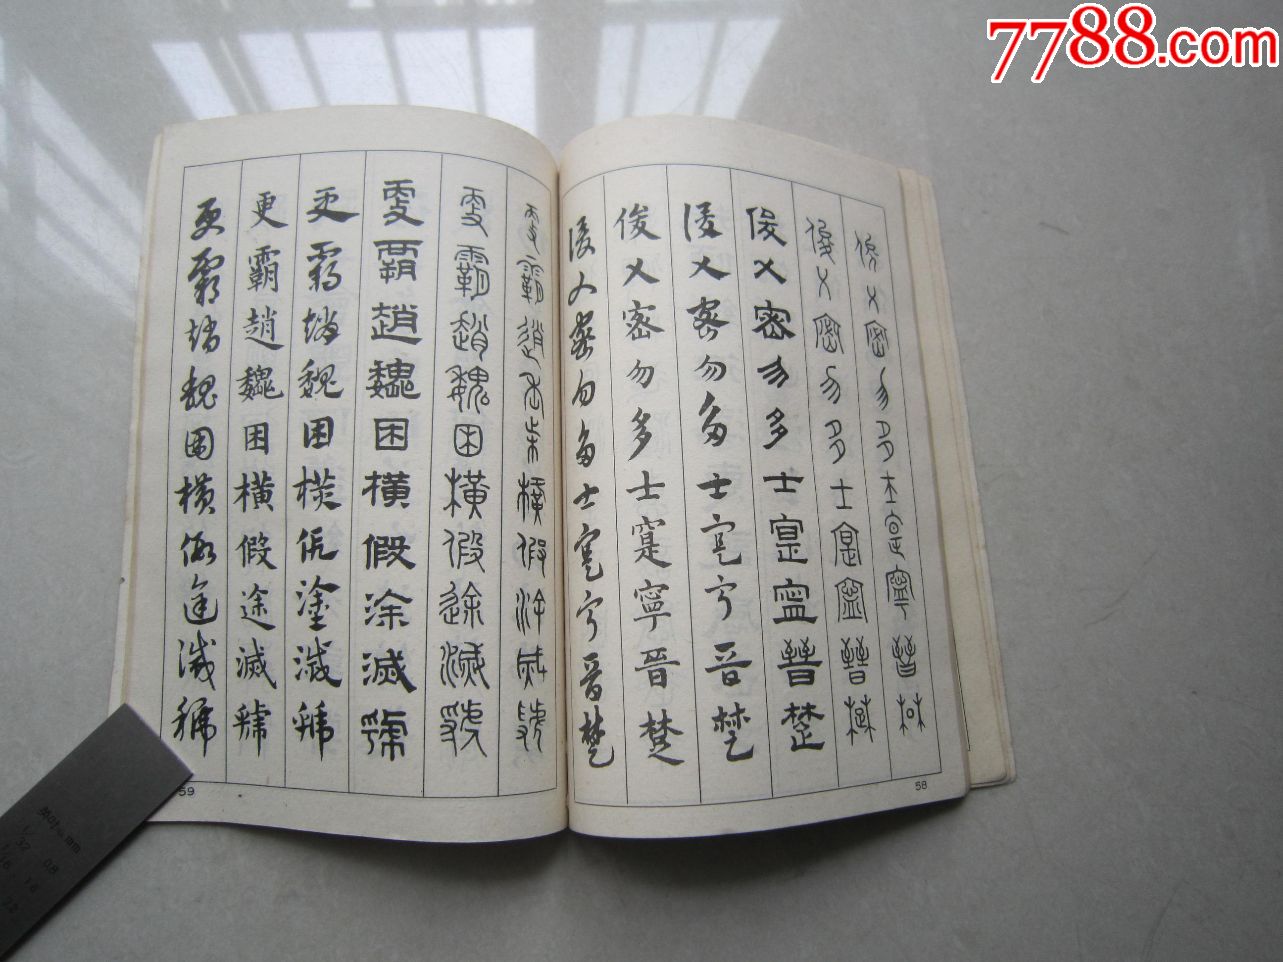 7788.com
俊乂密勿多士寔寧晉楚
俊乂密勿多士寔寧晉楚
俊乂密勿多士寔寧晉楚
俊乂密勿多士寔寧晉楚
俊乂密勿多士寔寧晉楚
俊乂密勿多士寔寧晉楚
58
更霸趙魏困橫假途滅虢
更霸趙魏困橫假途滅虢
更霸趙魏困橫假涂滅虢
更霸趙魏困橫假塗滅虢
更霸趙魏困横假途滅虢
更霸趙魏困横假途滅虢
59
mm
32 0.8